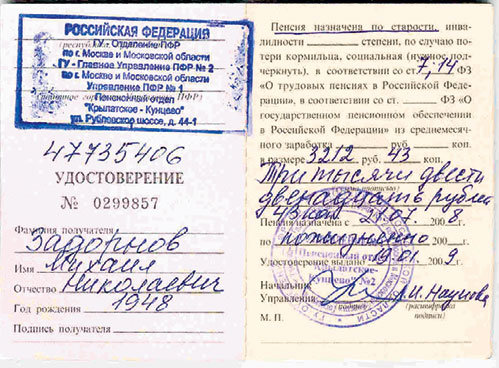 РОССИЙСКАЯ ФЕДЕРАЦИЯ
ГУ - Отделение ПФР
по г. Москве и Московской области
ГУ - Главное Управление ПФР № 2
по г. Москве и Московской области
Управление ПФР № 1
Пенсионный отдел
"Крылатское - Кунцево"
ул. Рублевское шоссе, д. 44-1
47735406
УДОСТОВЕРЕНИЕ
№ 0299857
Фамилия получателя
Задорнов
Имя Михаил
Отчество Николаевич
Год рождения 1948
Подпись получателя
Пенсия назначена по старости, инва-
лидности степени, по случаю по-
тери кормильца, социальная (нужное под-
черкнуть), в соответствии со ст. 7, 14 ФЗ
«О трудовых пенсиях в Российской Феде-
рации», в соответствии со ст. ФЗ «О
государственном пенсионном обеспечении
в Российской Федерации» из среднемесяч-
ного заработка руб. коп.
в размере 3212 руб. 43 коп.
Три тысячи двести
двенадцать рублей
43 коп
Пенсия назначена с 21.07. 2008 г.
по пожизненно
Удостоверение выдано 19.01. 2009 г.
Пенсионный отдел
"Крылатское-
Кунцево" №2
Начальник
Управления И. Наумова
(подпись) (расшифровка
подписи)
М. П.